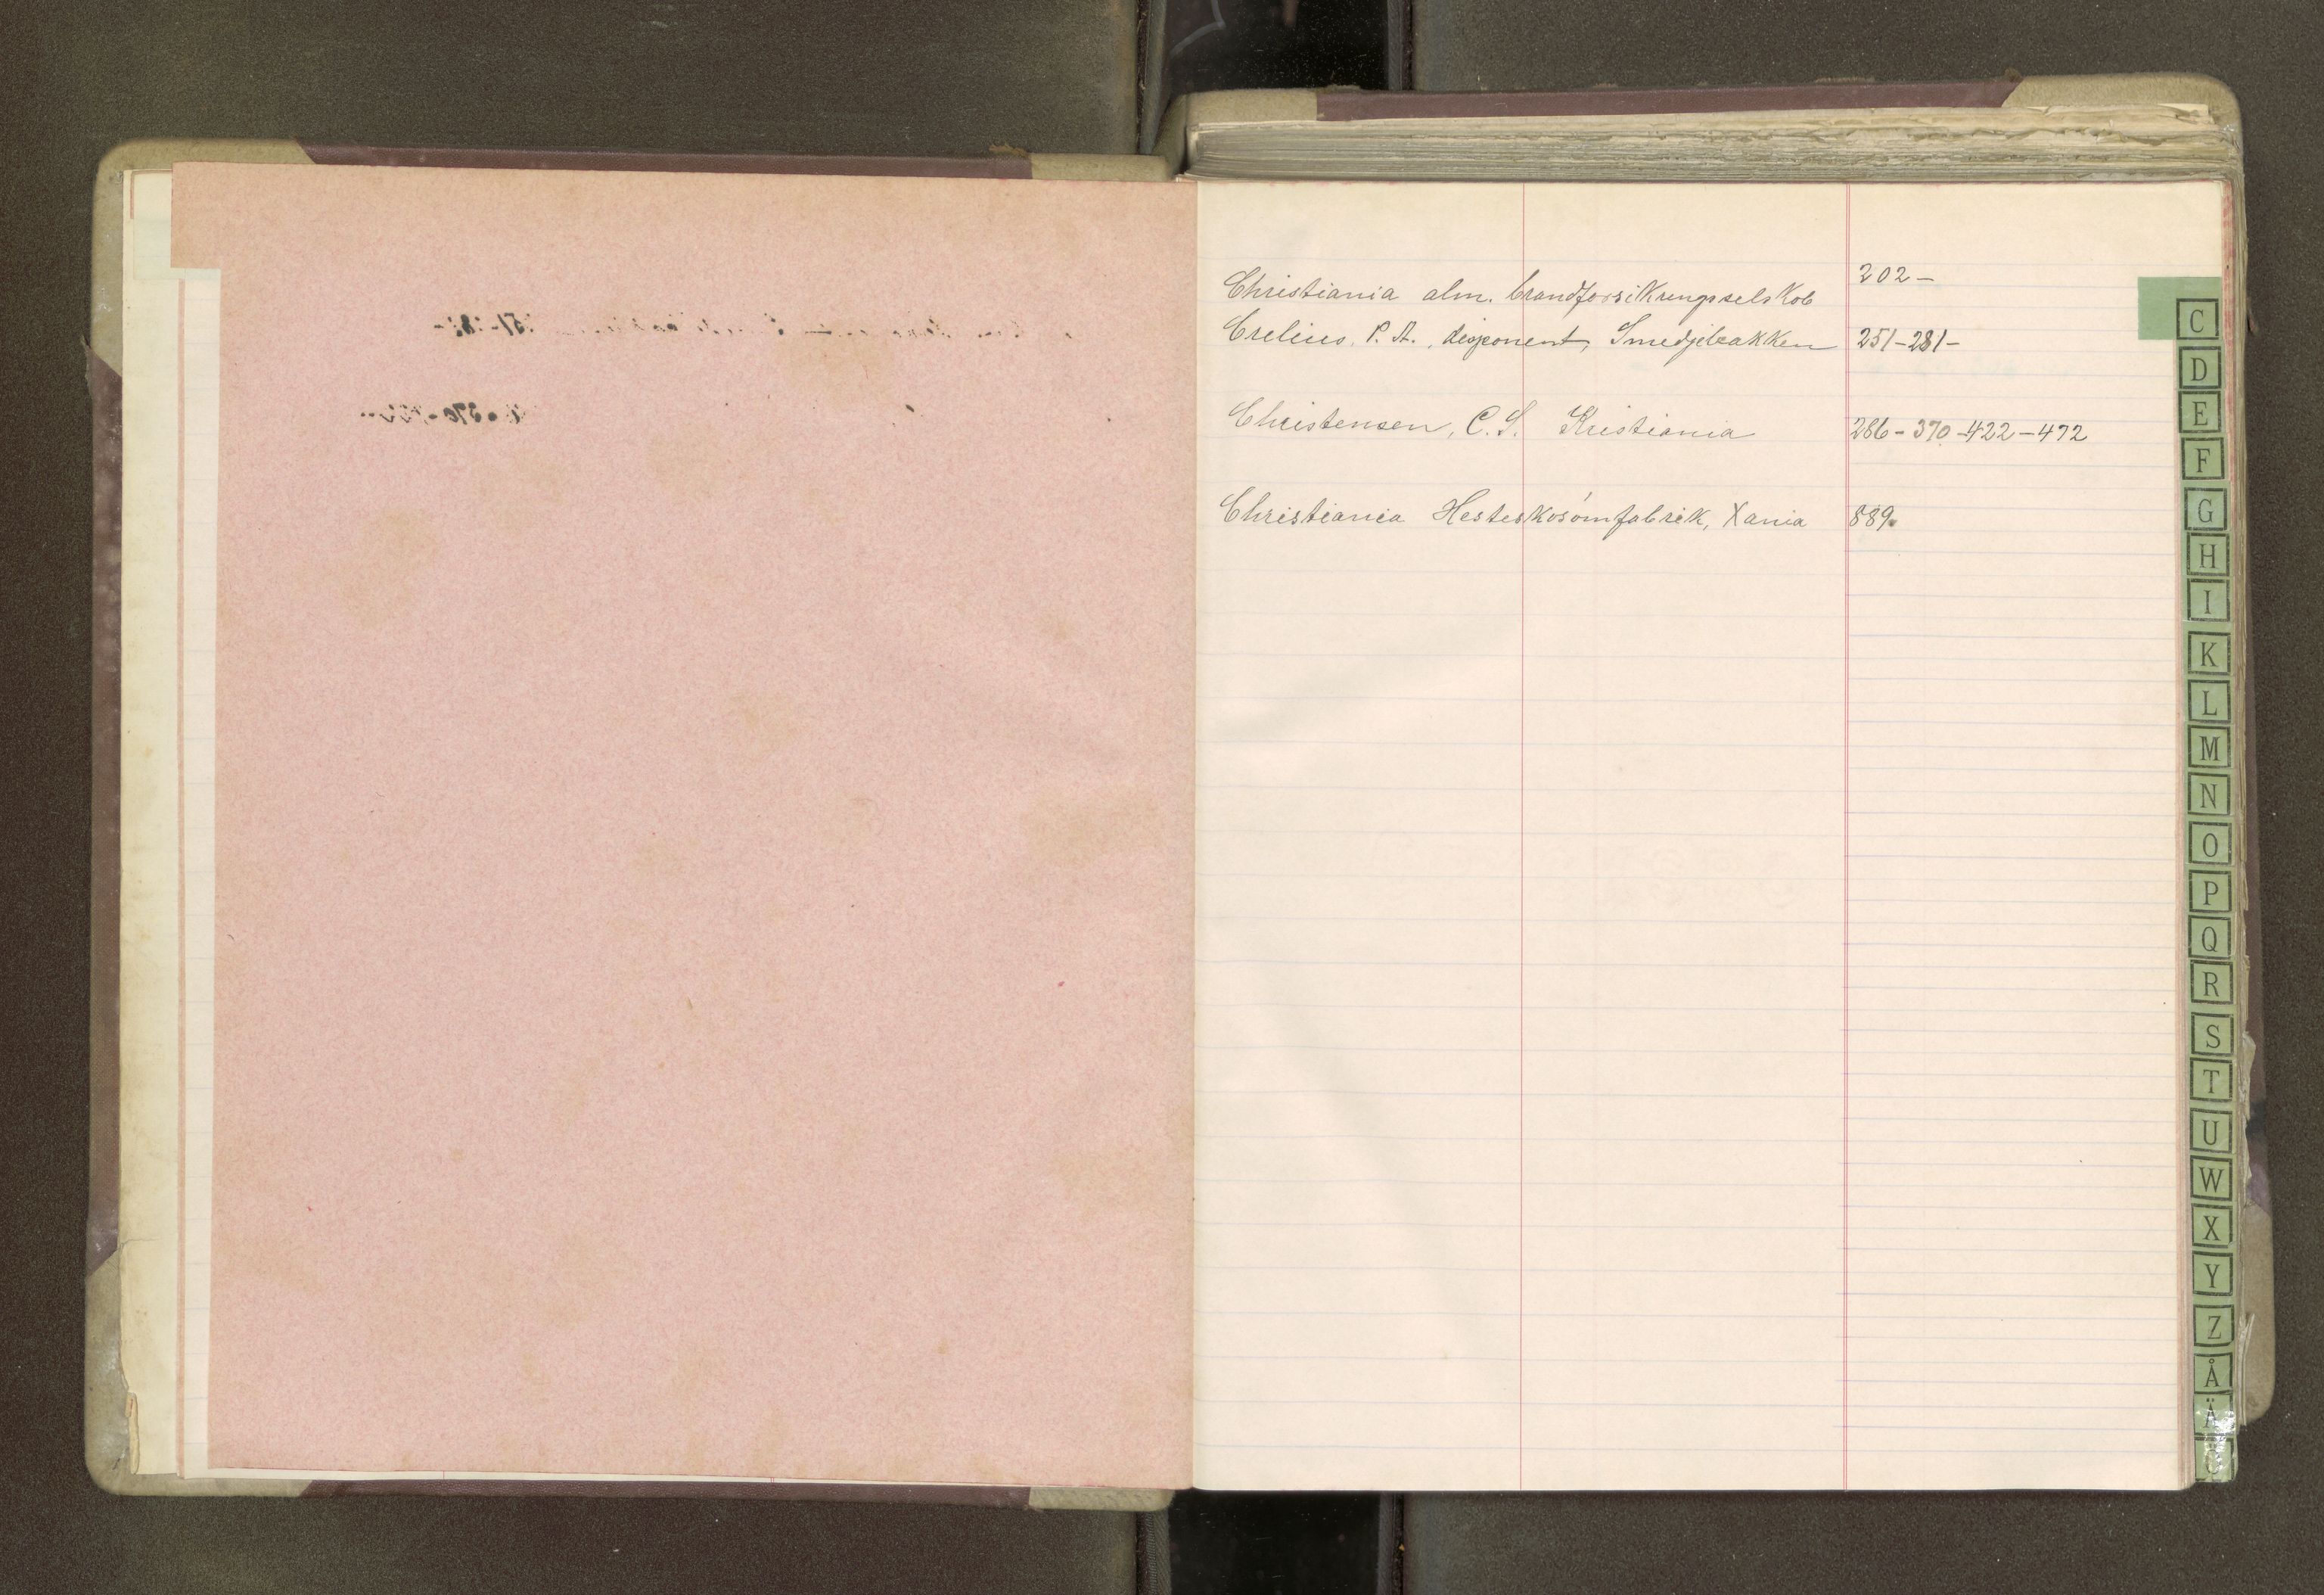 Christiania alm. brandforsikringsselskob 202-
Crelius, P. A., disponent, Smedjebakken 251-281-
Christensen, C. S. Kristiania 286-370-422-472
Christiania Hesteskosömfabrik, Xania 889.
C
D
E
F
G
H
I
K
L
M
N
O
P
Q
R
S
T
U
W
X
Y
Z
Å
Ä
Ö